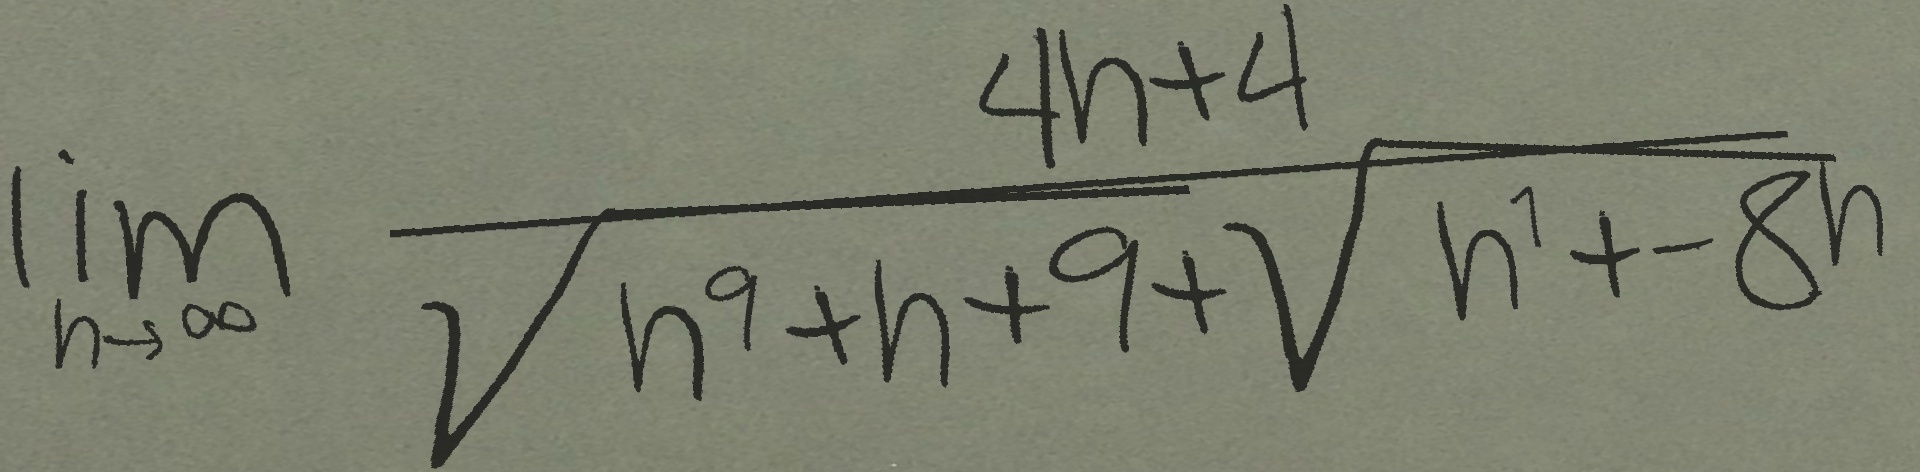 \lim_{n \to \infty} \frac{4n+4}{\sqrt{n^9+n+9}+\sqrt{n^1+-8n}}